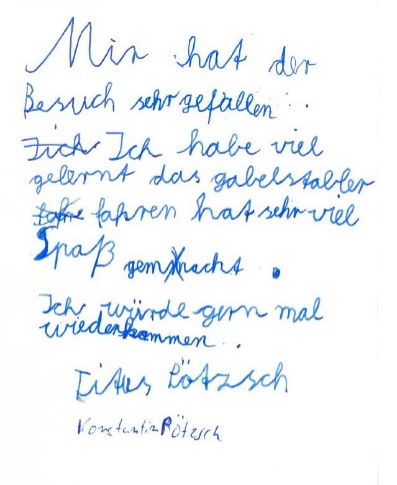 Mir hat der
Besuch sehr gefallen.
Ich habe viel
gelernt das gabelstabler
fahren hat sehr viel
Spaß gemacht.
Ich würde gern mal
wiederkommen.
Titus Rötzsch
Konstantin Rötzsch